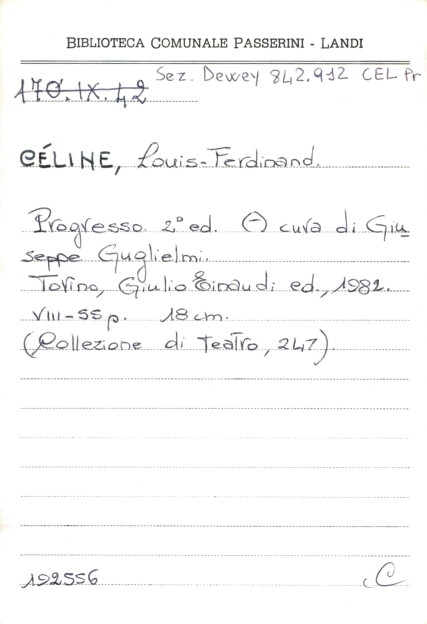 BIBLIOTECA COMUNALE PASSERINI - LANDI
Sez. Dewey 842.912 CEL Pr
170.IX.42
CÉLINE, Louis-Ferdinand.
Progresso. 2° ed. (-) cura di Giu
seppe Guglielmi.
Torino, Giulio Einaudi ed., 1982.
VIII-55 p. 18 cm.
(Collezione di Teatro, 247).
192556
C